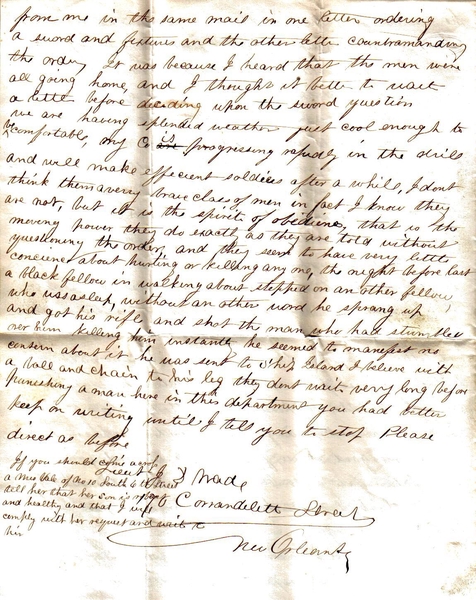 from me in the same mail in one letter ordering
a sword and fixtures and the other letter countramanding
the order. It was because I heard that the men were
all going home, and I thought it better to wait
a little before deciding upon the sword question
we are having splendid weather just cool enough to
be comfortable, my Co is progressing rapidly in the drill
and will make efficient soldiers after a while, I dont
think them a very brave class of men in fact I know they
are not, but it is the spirit of obedience, that is the
moving power they do exactly as they are told without
questioning the order, and they seem to have very little
concern about hurting or killing any one, the night before last
a black fellow in walking about stepped on an other fellow
who was asleep, without an other word he sprang up
and got his rifle and shot the man who had stumbled
over him killing him instantly he seemed to manifest no
concern about it he was sent to Ship Island I believe with
a ball and chain to his leg they dont wait very long before
punishing a man here in this department you had better
keep on writing until I tell you to stop Please
direct as before
Lieut Wade
Corrandelett Street
New Orleans
If you should come across
a Mrs of No 10 South 4th Street
tell her that her son is
and healthy and that I will
comply with her request and write to
him